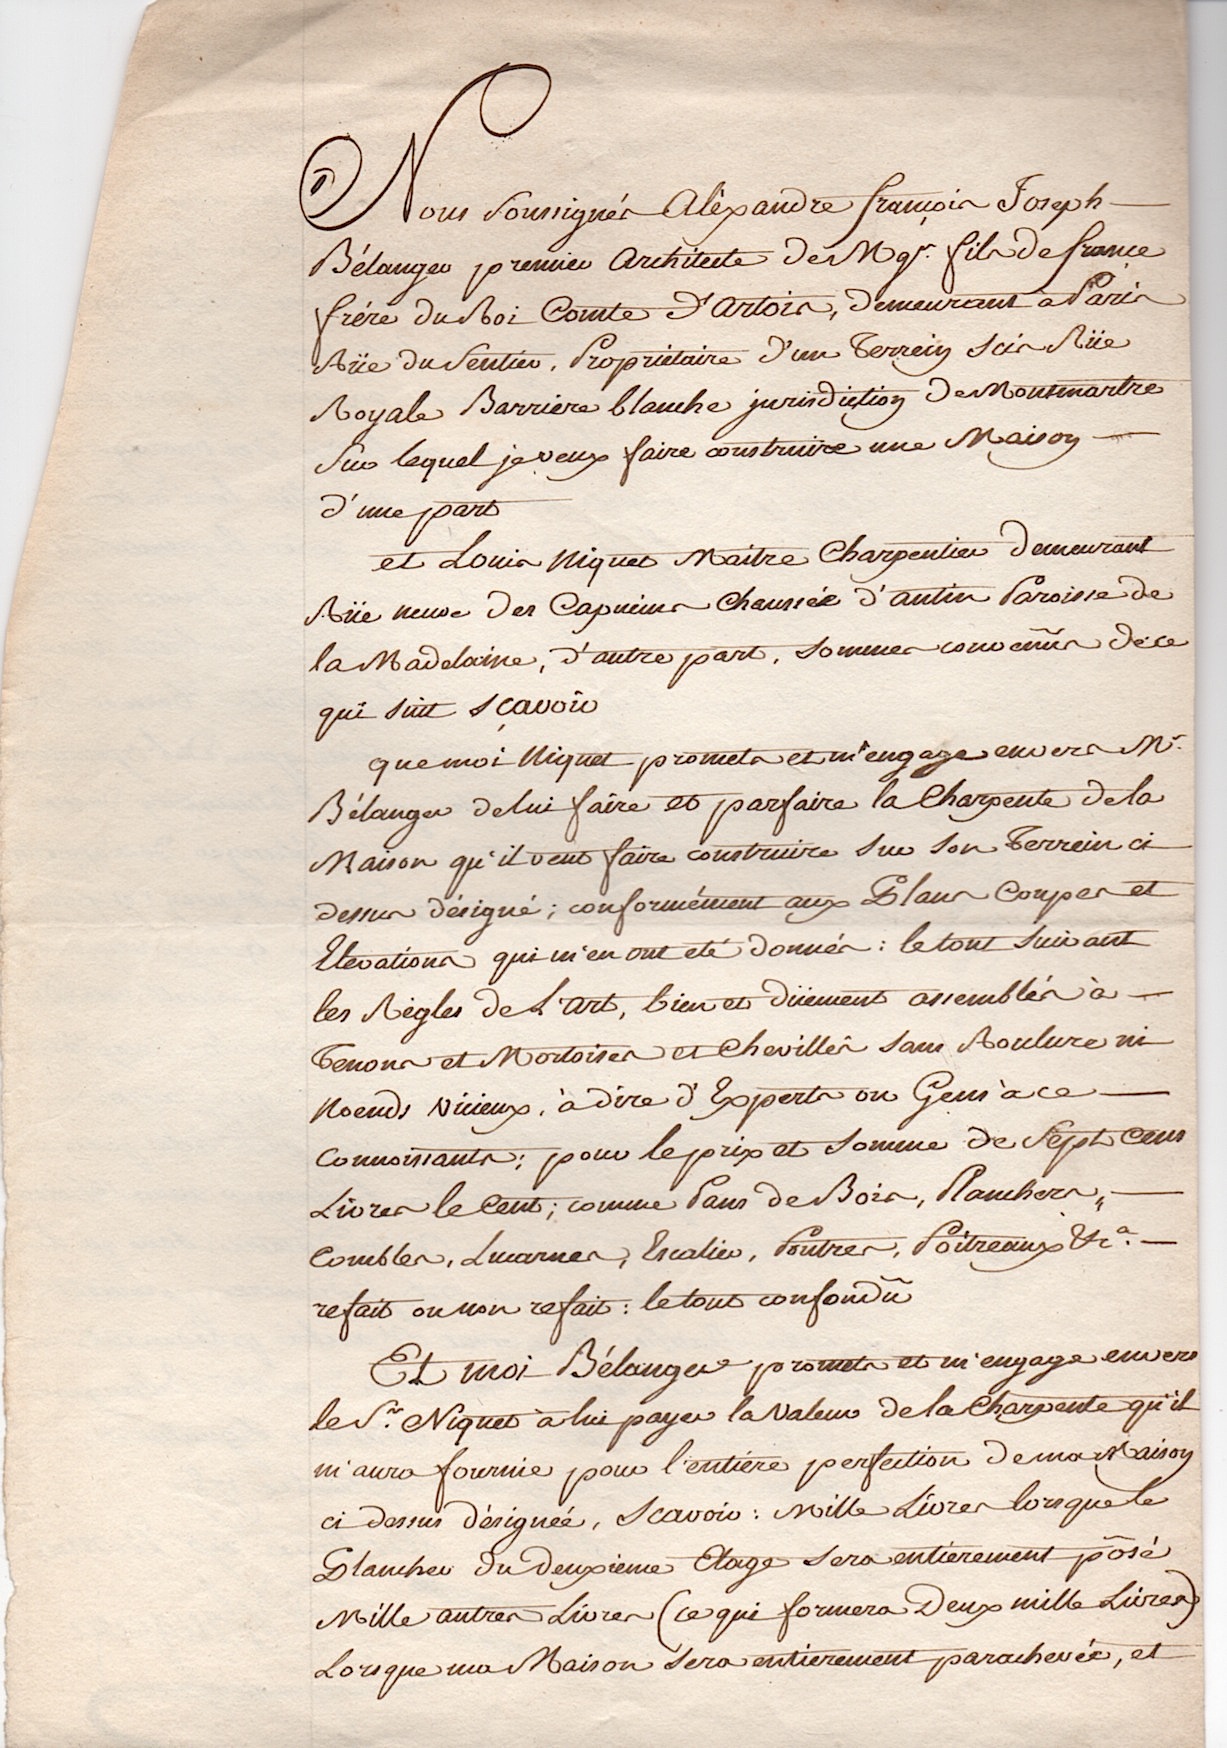 Nous Soussignés Aléxandre françois Joseph
Bélanger premier Architecte de Mgr. fils de france
frére du Roi Comte d'Artois, demeurant à Paris
Rüe du Sentier. Propriétaire d'un Terrein scis Rüe
Royale Barriere blanche jurisdiction de Montmartre
Sur lequel je veux faire construire une Maison
d'une part
et Louis Niquet Maitre Charpentier demeurant
Rüe neuve des Capucins Chaussée d'antin Paroisse de
la Madelaine, d'autre part, sommes convenus de ce
qui suit sçavoir
que moi Niquet promets et m'engage envers Mr.
Bélanger de lui faire et parfaire la Charpente de la
Maison qu'il veut faire construire sur son Terrein ci
dessus désigné; conformément aux Plans Coupes et
Elevations qui m'en ont eté donnés : le tout suivant
les Régles de L'art, bien et düement assemblés à
Tenons et Mortoises et Chevillés sans Roulure ni
Noeuds Vicieux, à dire d'Experts ou Gens à ce
Connoissants; pour le prix et somme de Sept cens
Livres le Cent; comme Pans de Bois, Planchers,
Combles, Lucarnes, Escalier, Poutres, Poitreaux &ca.
refait ou non refait : le tout confondu
Et moi Bélanger promets et m'engage envers
le Sr. Niquet à lui payer la Valeur de la Charpente qu'il
m'aura fournie pour l'entiére perfection de ma Maison
ci dessus désignée, Scavoir : Mille Livres lorsque le
Plancher du deuxieme Etage sera entierement posé
Mille autres Livres (ce qui formera Deux mille Livres)
Lorsque ma Maison sera entierement parachevée, et